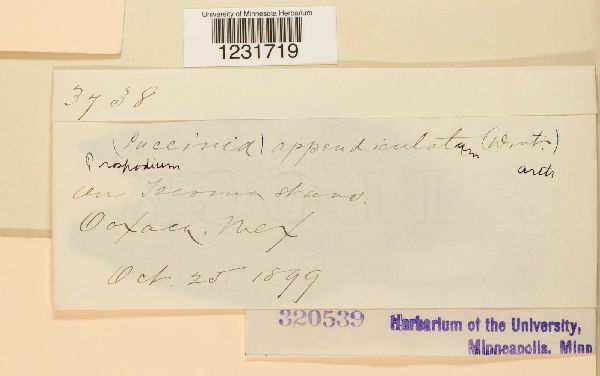 University of Minnesota Herbarium
1231719
3738
(Puccinia) appendiculatum (Wint.)
Prospodium arth
on Tecoma stans.
Oaxaca. Mex
Oct. 25. 1899
320539 Herbarium of the University,
Minneapolis. Minn